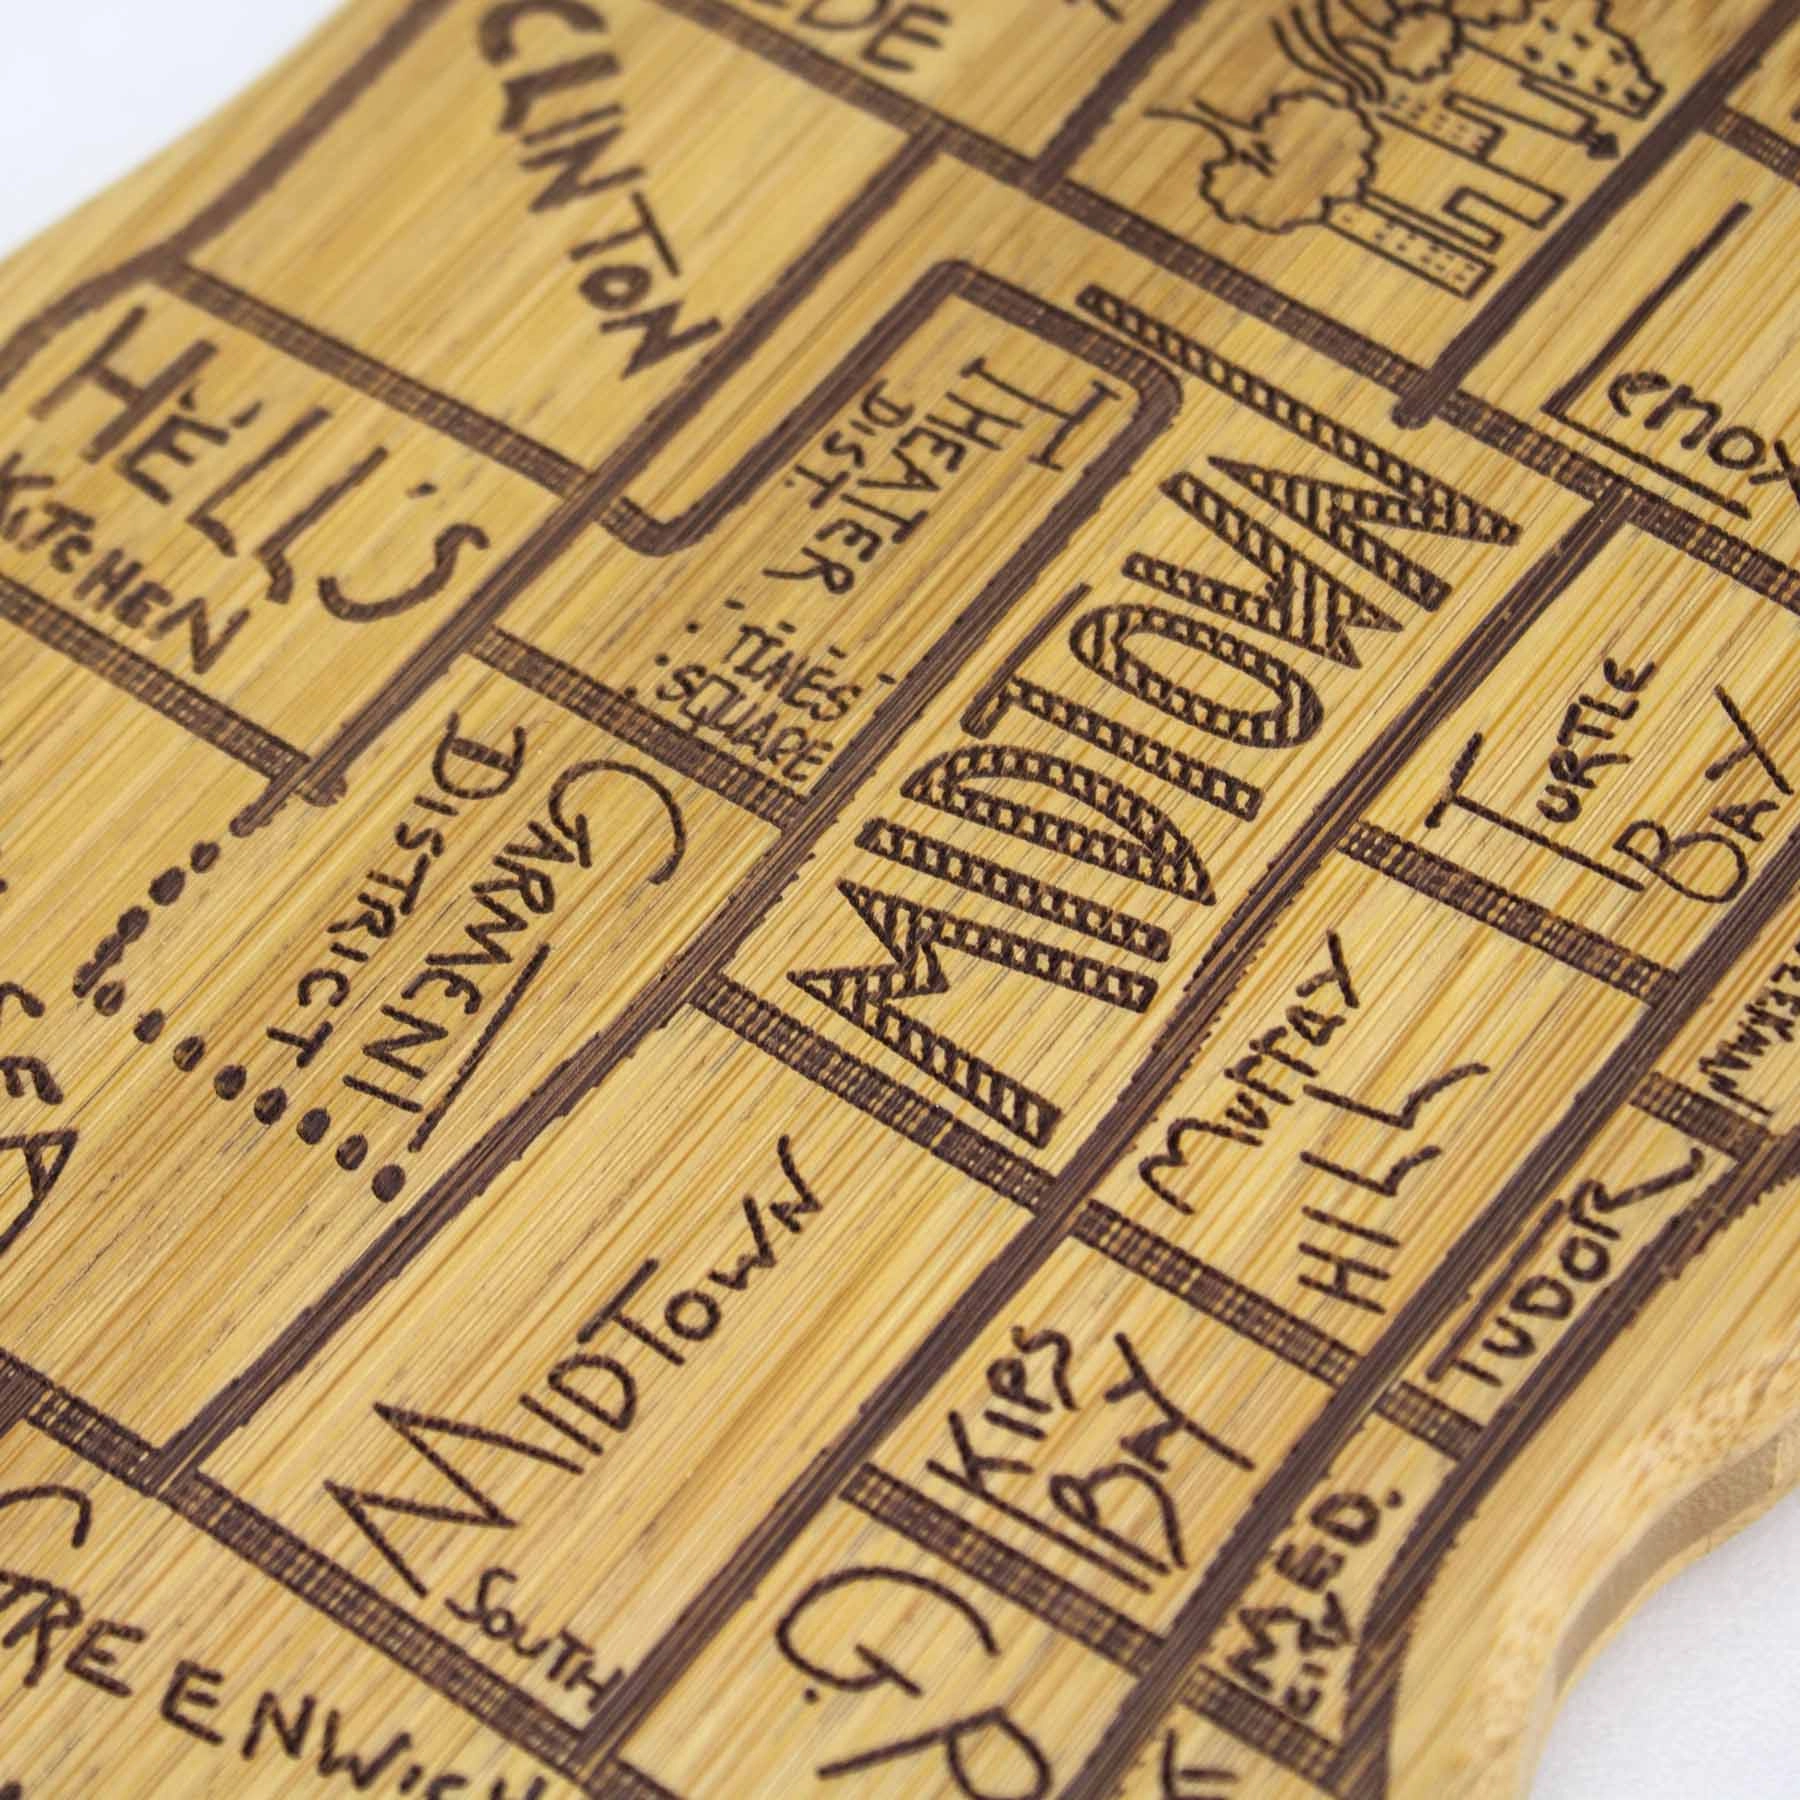 CLINTON
HELL'S
KITCHEN
THEATER
DIST.
TIMES
SQUARE
MIDTOWN
Lenox
TURTLE
BAY
GARMENT
DISTRICT
MURRAY
HILL
TUDOR
MIDTOWN
SOUTH
KIPS
BAY
MED.